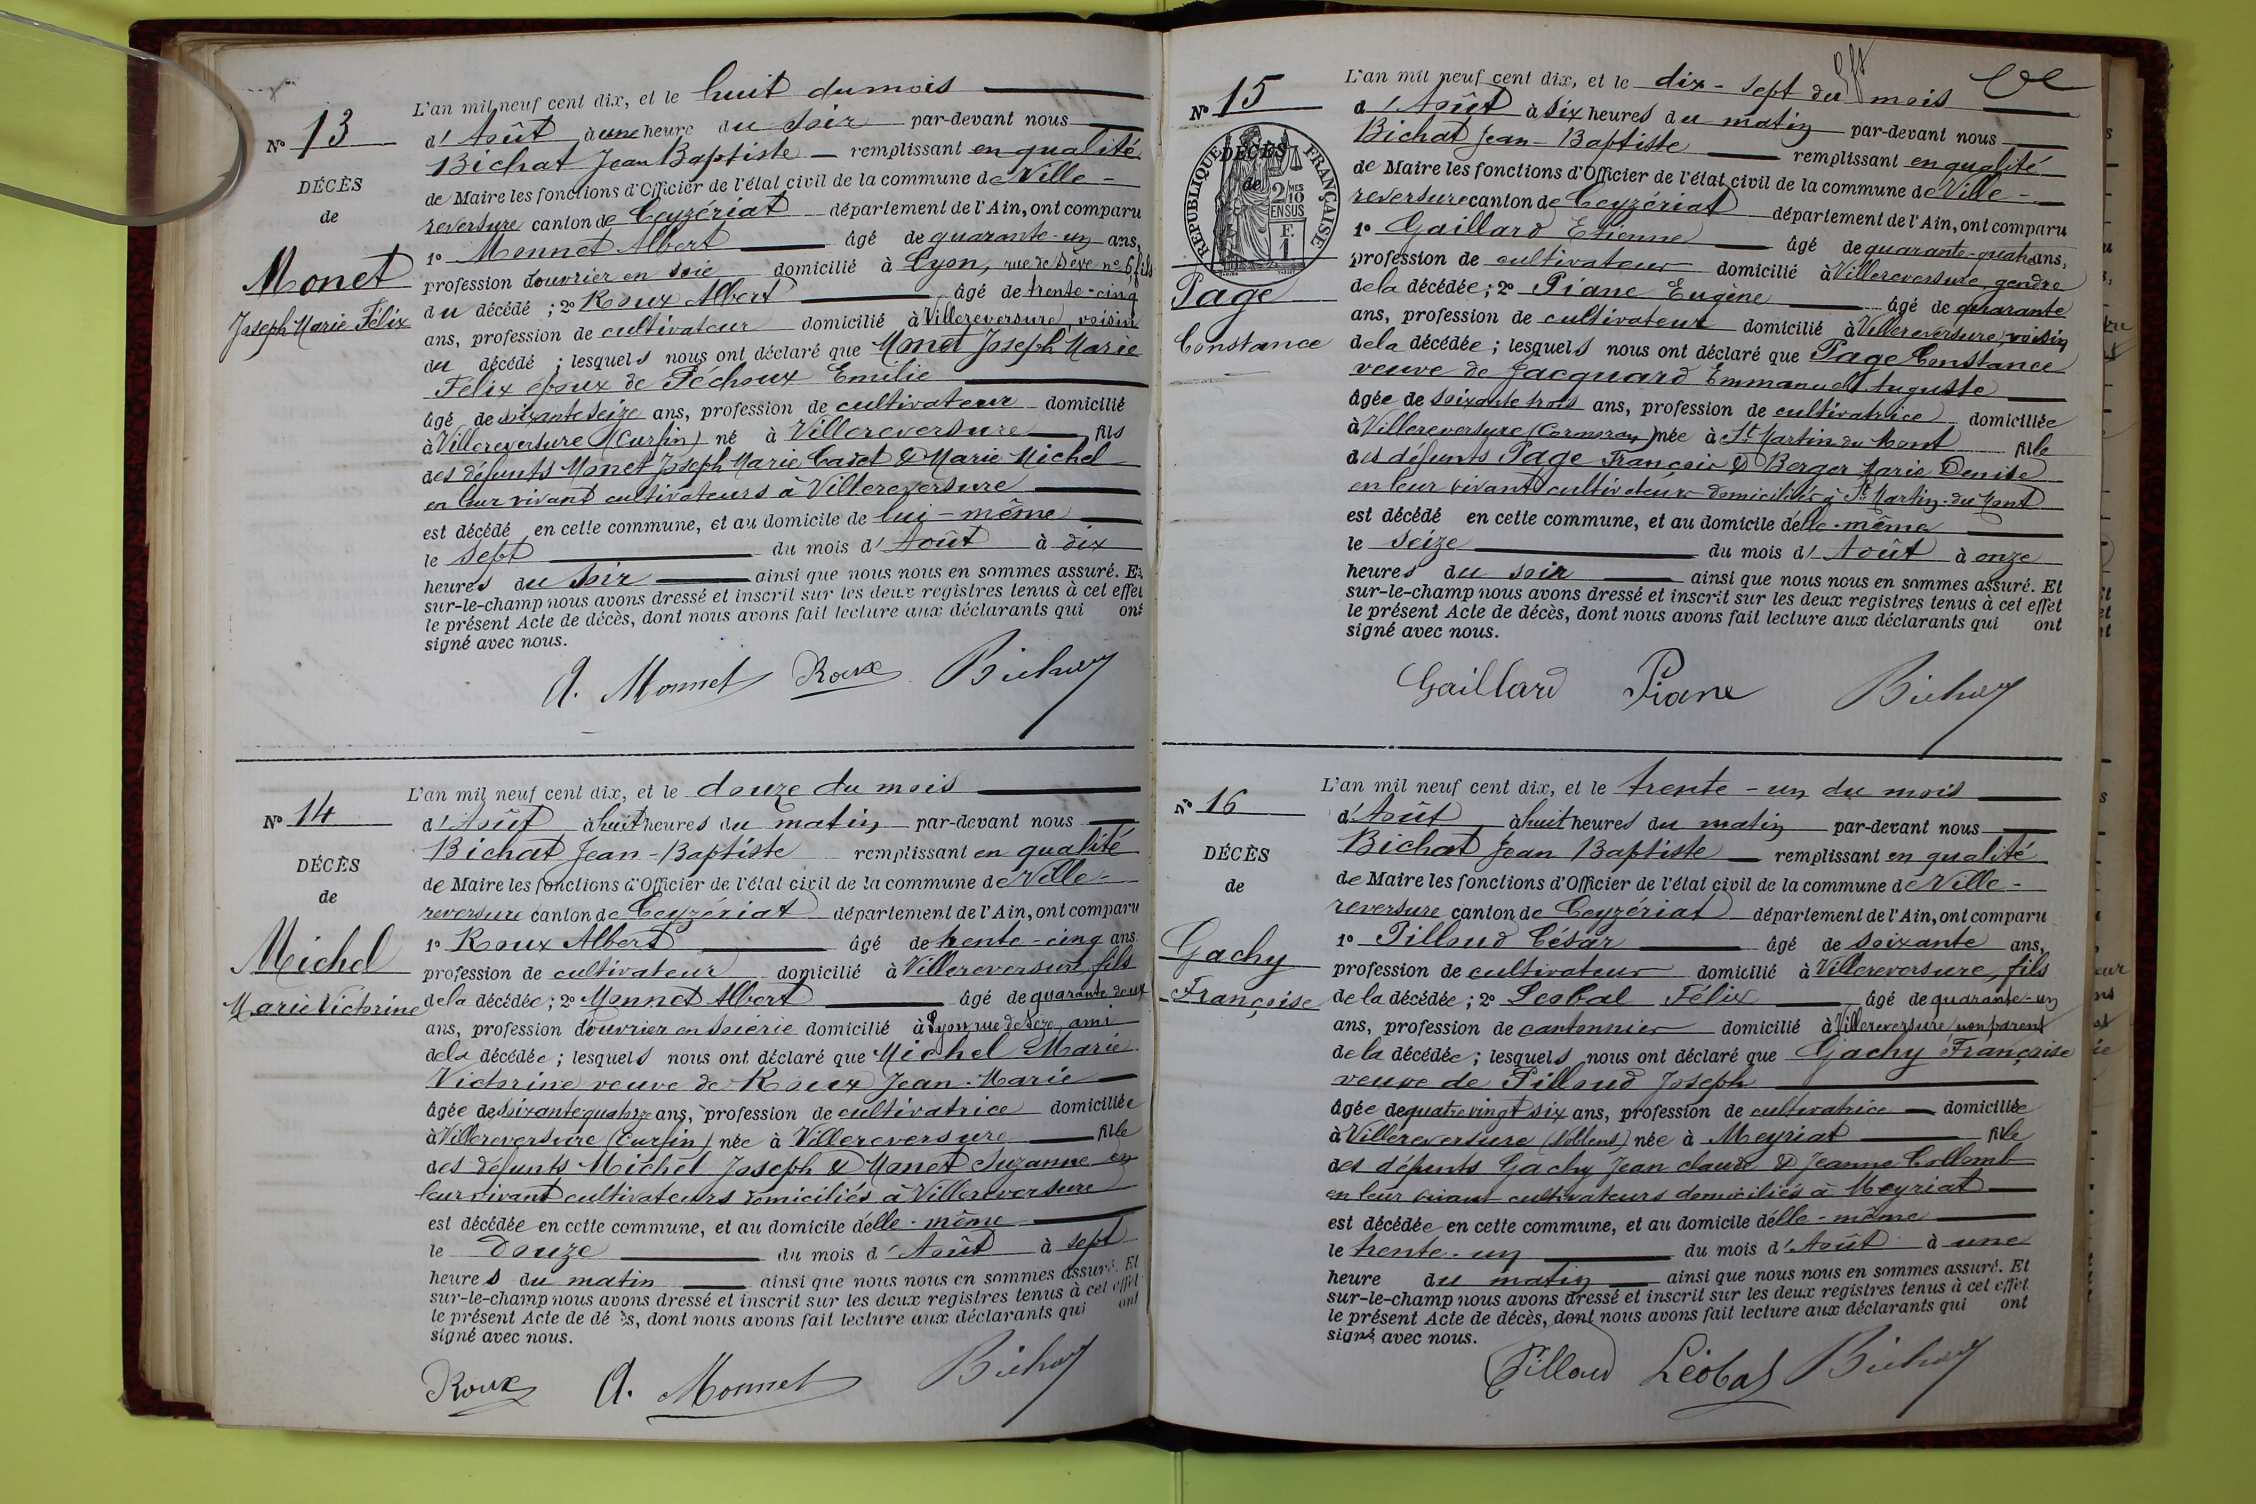 N° 13
DÉCÈS
de
Monet
Joseph Marie Félix
L'an mil neuf cent dix, et le huit du mois
d'Août à une heure du soir par-devant nous
Bichat Jean Baptiste remplissant en qualité
de Maire les fonctions d'Officier de l'état civil de la commune de Ville-
reversure canton de Ceyzériat département de l'Ain, ont comparu
1° Monnet Albert âgé de quarante-un ans,
profession d'ouvrier en soie domicilié à Lyon, rue de Sèze n° 6, fils
du décédé ; 2° Roux Albert âgé de trente-cinq
ans, profession de cultivateur domicilié à Villereversure, voisin
du décédé ; lesquels nous ont déclaré que Monet Joseph Marie
Félix époux de Péchoux Emilie
âgé de soixante seize ans, profession de cultivateur domicilié
à Villereversure (Cursin) né à Villereversure fils
des défunts Monet Joseph Marie Cadet & Marie Michel
en leur vivant cultivateurs à Villereversure
est décédé en cette commune, et au domicile de lui-même
le sept du mois d'Août à dix
heures du soir ainsi que nous nous en sommes assuré. Et
sur-le-champ nous avons dressé et inscrit sur les deux registres tenus à cet effet
le présent Acte de décès, dont nous avons fait lecture aux déclarants qui ont
signé avec nous.
A. Monnet Roux Bichat
N° 14
DÉCÈS
de
Michel
Marie Victorine
L'an mil neuf cent dix, et le douze du mois
d'Août à huit heures du matin par-devant nous
Bichat Jean-Baptiste remplissant en qualité
de Maire les fonctions d'Officier de l'état civil de la commune de Ville-
reversure canton de Ceyzériat département de l'Ain, ont comparu
1° Roux Albert âgé de trente-cinq ans
profession de cultivateur domicilié à Villereversure fils
de la décédée ; 2° Monnet Albert âgé de quarante deux
ans, profession d'ouvrier en soierie domicilié à Lyon, rue de Sèze, ami
de la décédée ; lesquels nous ont déclaré que Michel Marie
Victorine veuve de Roux Jean-Marie
âgée de soixante quatorze ans, profession de cultivatrice domiciliée
à Villereversure (Cursin) née à Villereversure fille
des défunts Michel Joseph & Monet Suzanne en
leur vivant cultivateurs domiciliés à Villereversure
est décédée en cette commune, et au domicile d'elle-même
le Douze du mois d'Août à sept
heures du matin ainsi que nous nous en sommes assuré. Et
sur-le-champ nous avons dressé et inscrit sur les deux registres tenus à cet effet
le présent Acte de décès, dont nous avons fait lecture aux déclarants qui ont
signé avec nous.
Roux A. Monnet Bichat
N° 15
DÉCÈS
de
RÉPUBLIQUE FRANÇAISE
2 MES
10
EN SUS
F.
1
Page
Constance
L'an mil neuf cent dix, et le dix-sept du mois
d'Août à six heures du matin par-devant nous
Bichat Jean-Baptiste remplissant en qualité
de Maire les fonctions d'Officier de l'état civil de la commune de Ville-
reversure canton de Ceyzériat département de l'Ain, ont comparu
1° Gaillard Etienne âgé de quarante-quatre ans,
profession de cultivateur domicilié à Villereversure, gendre
de la décédée ; 2° Piane Eugène âgé de quarante
ans, profession de cultivateur domicilié à Villereversure, voisin
de la décédée ; lesquels nous ont déclaré que Page Constance
veuve de Jacquard Emmanuel Auguste
âgée de soixante trois ans, profession de cultivatrice domiciliée
à Villereversure (Cormoran) née à St Martin du Mont fille
des défunts Page François & Berger Marie Denise
en leur vivant cultivateurs domiciliés à St Martin-du-Mont
est décédé en cette commune, et au domicile d'elle-même
le seize du mois d'Août à onze
heures du soir ainsi que nous nous en sommes assuré. Et
sur-le-champ nous avons dressé et inscrit sur les deux registres tenus à cet effet
le présent Acte de décès, dont nous avons fait lecture aux déclarants qui ont
signé avec nous.
Gaillard Piane Bichat
N° 16
DÉCÈS
de
Gachy
Françoise
L'an mil neuf cent dix, et le trente-un du mois
d'Août à huit heures du matin par-devant nous
Bichat Jean Baptiste remplissant en qualité
de Maire les fonctions d'Officier de l'état civil de la commune de Ville-
reversure canton de Ceyzériat département de l'Ain, ont comparu
1° Pilloud César âgé de soixante ans,
profession de cultivateur domicilié à Villereversure, fils
de la décédée ; 2° Léobal Félix âgé de quarante-un
ans, profession de cantonnier domicilié à Villereversure non parent
de la décédée ; lesquels nous ont déclaré que Gachy Françoise
veuve de Pilloud Joseph
âgée de quatre vingt six ans, profession de cultivatrice domiciliée
à Villereversure (Noblens) née à Meyriat fille
des défunts Gachy Jean claude & Jeanne Collomb
en leur vivant cultivateurs domiciliés à Meyriat
est décédée en cette commune, et au domicile d'elle-même
le trente-un du mois d'Août à une
heure du matin ainsi que nous nous en sommes assuré. Et
sur-le-champ nous avons dressé et inscrit sur les deux registres tenus à cet effet
le présent Acte de décès, dont nous avons fait lecture aux déclarants qui ont
signé avec nous.
Pilloud Léobal Bichat